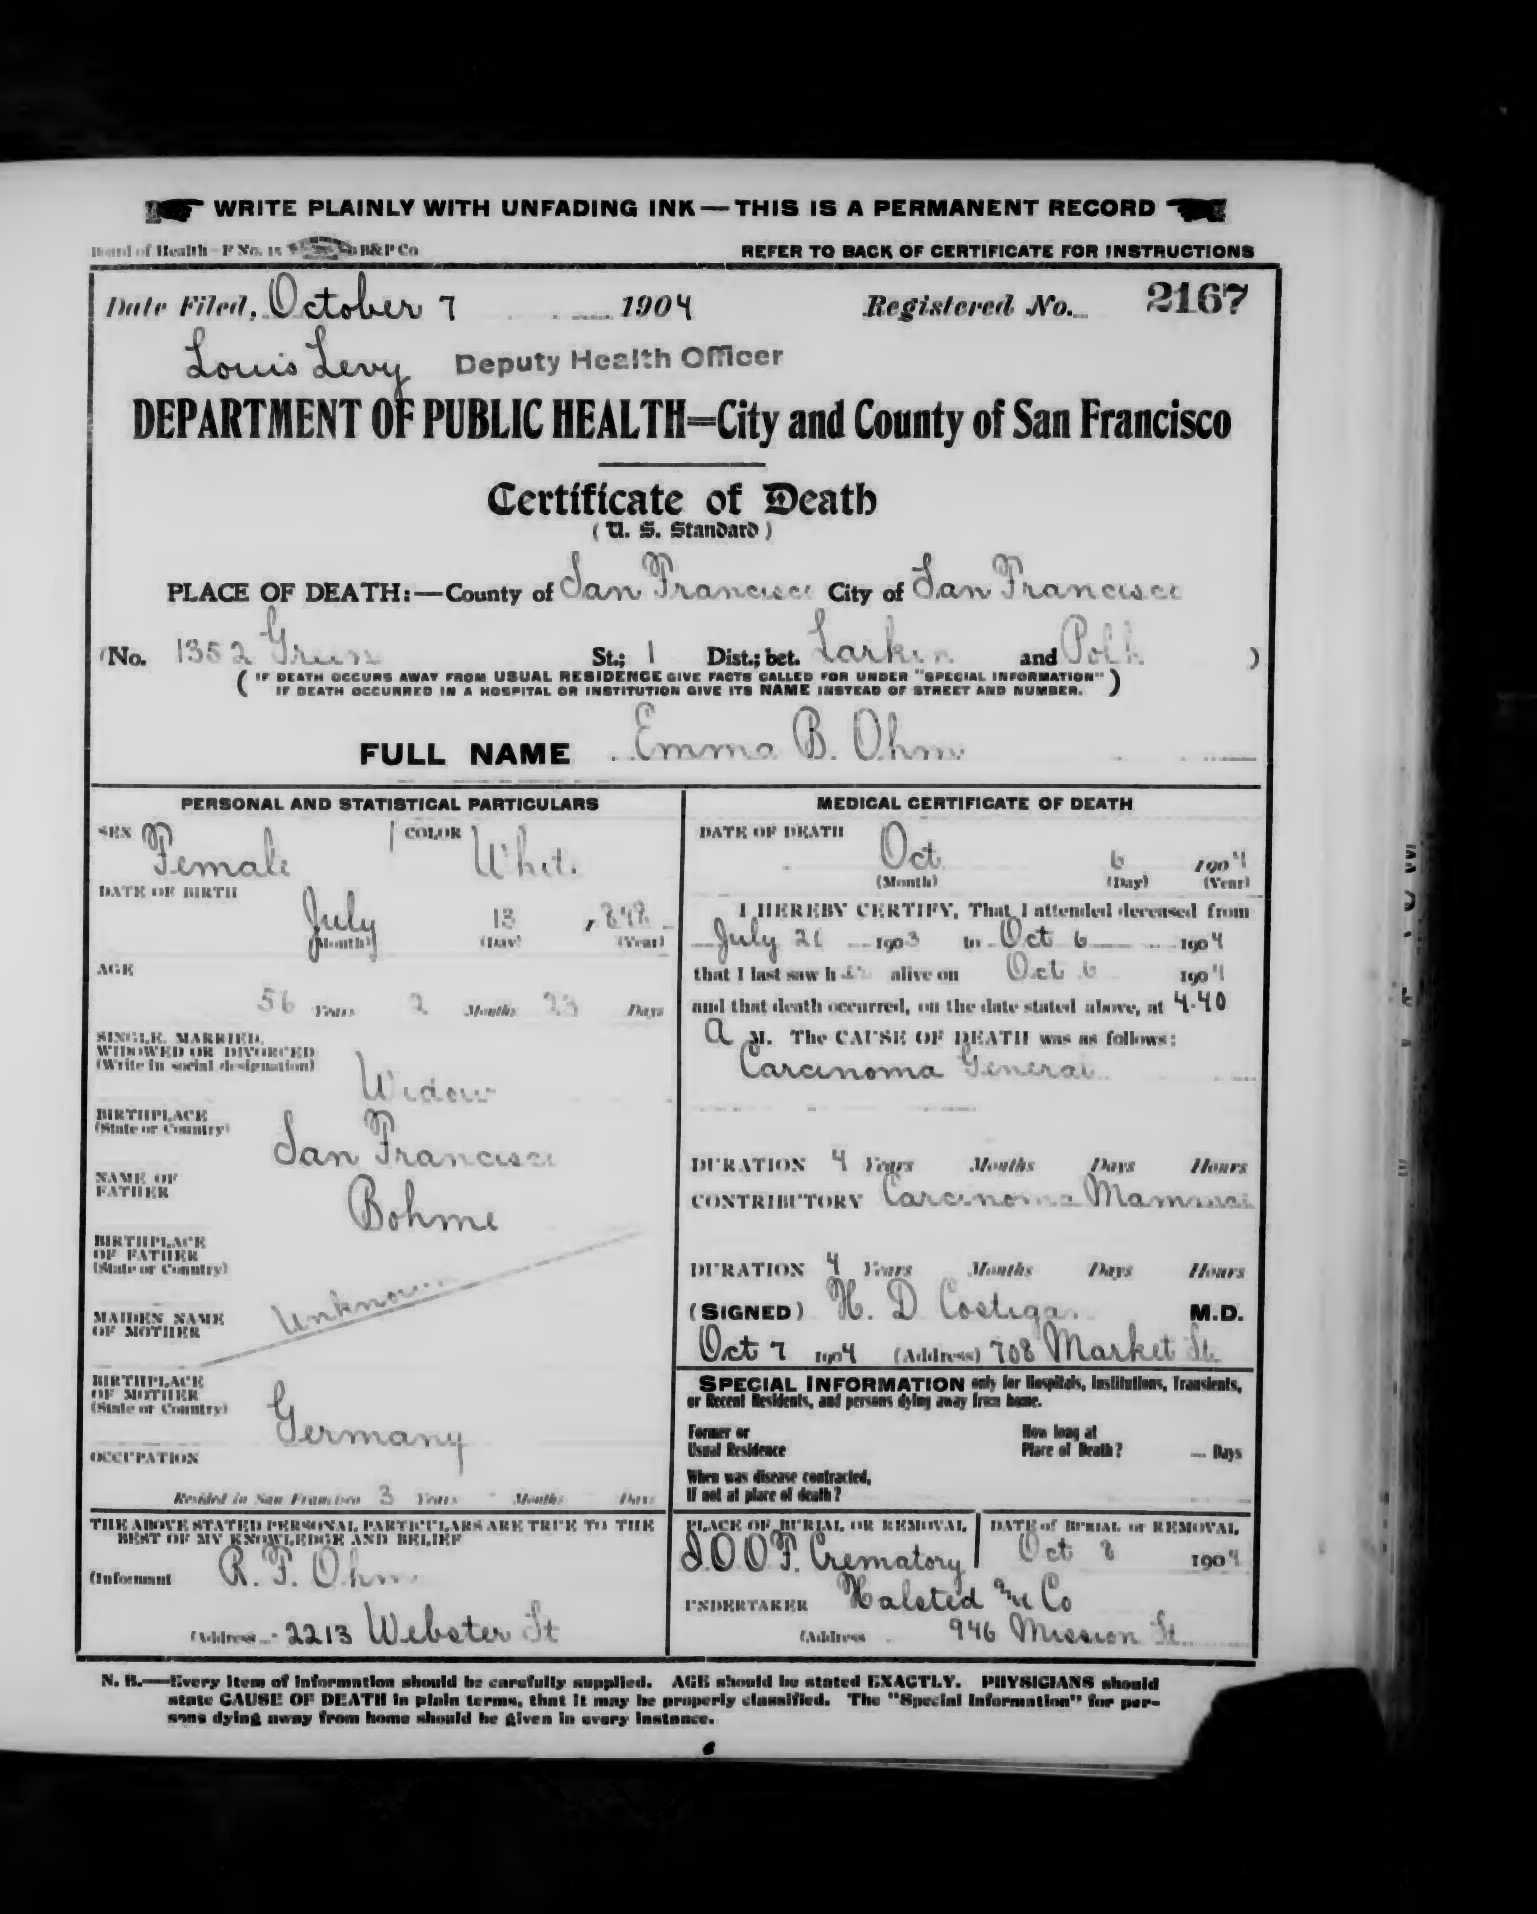 WRITE PLAINLY WITH UNFADING INK—THIS IS A PERMANENT RECORD
Board of Health—F No. 15 B&P Co REFER TO BACK OF CERTIFICATE FOR INSTRUCTIONS
Date Filed, October 7 1904 Registered No. 2167
Louis Levy Deputy Health Officer
DEPARTMENT OF PUBLIC HEALTH=City and County of San Francisco
Certificate of Death
(U. S. Standard)
PLACE OF DEATH:—County of San Francisco City of San Francisco
(No. 1352 Green St.; 1 Dist.; bet. Larkin and Polk )
(IF DEATH OCCURS AWAY FROM USUAL RESIDENCE GIVE FACTS CALLED FOR UNDER "SPECIAL INFORMATION"
IF DEATH OCCURRED IN A HOSPITAL OR INSTITUTION GIVE ITS NAME INSTEAD OF STREET AND NUMBER.)
FULL NAME Emma B. Ohm
PERSONAL AND STATISTICAL PARTICULARS
SEX Female COLOR White
DATE OF BIRTH
July 13 , 848
(Month) (Day) (Year)
AGE
56 Years 2 Months 23 Days
SINGLE, MARRIED,
WIDOWED OR DIVORCED
(Write in social designation) Widow
BIRTHPLACE
(State or Country) San Francisco
NAME OF
FATHER Bohme
BIRTHPLACE
OF FATHER
(State or Country)
Unknown
MAIDEN NAME
OF MOTHER
BIRTHPLACE
OF MOTHER
(State or Country) Germany
OCCUPATION
Resided in San Francisco 3 Years Months Days
THE ABOVE STATED PERSONAL PARTICULARS ARE TRUE TO THE
BEST OF MY KNOWLEDGE AND BELIEF
(Informant R. F. Ohm
(Address 2213 Webster St
MEDICAL CERTIFICATE OF DEATH
DATE OF DEATH
Oct 6 1904
(Month) (Day) (Year)
I HEREBY CERTIFY, That I attended deceased from
July 21 1903 to Oct 6 1904
that I last saw her alive on Oct 6 1904
and that death occurred, on the date stated above, at 4.40
A M. The CAUSE OF DEATH was as follows:
Carcinoma General
DURATION 4 Years Months Days Hours
CONTRIBUTORY Carcinoma Mammae
DURATION 4 Years Months Days Hours
(SIGNED) H. D Costigan M.D.
Oct 7 1904 (Address) 708 Market St.
SPECIAL INFORMATION only for Hospitals, Institutions, Transients,
or Recent Residents, and persons dying away from home.
Former or
Usual Residence
How long at
Place of Death? Days
When was disease contracted,
If not at place of death?
PLACE OF BURIAL OR REMOVAL
I.O.O.F. Crematory
DATE of BURIAL or REMOVAL
Oct 8 1904
UNDERTAKER Halsted and Co
(Address 946 Mission St.
N. B.—Every item of information should be carefully supplied. AGE should be stated EXACTLY. PHYSICIANS should
state CAUSE OF DEATH in plain terms, that it may be properly classified. The "Special Information" for per-
sons dying away from home should be given in every instance.